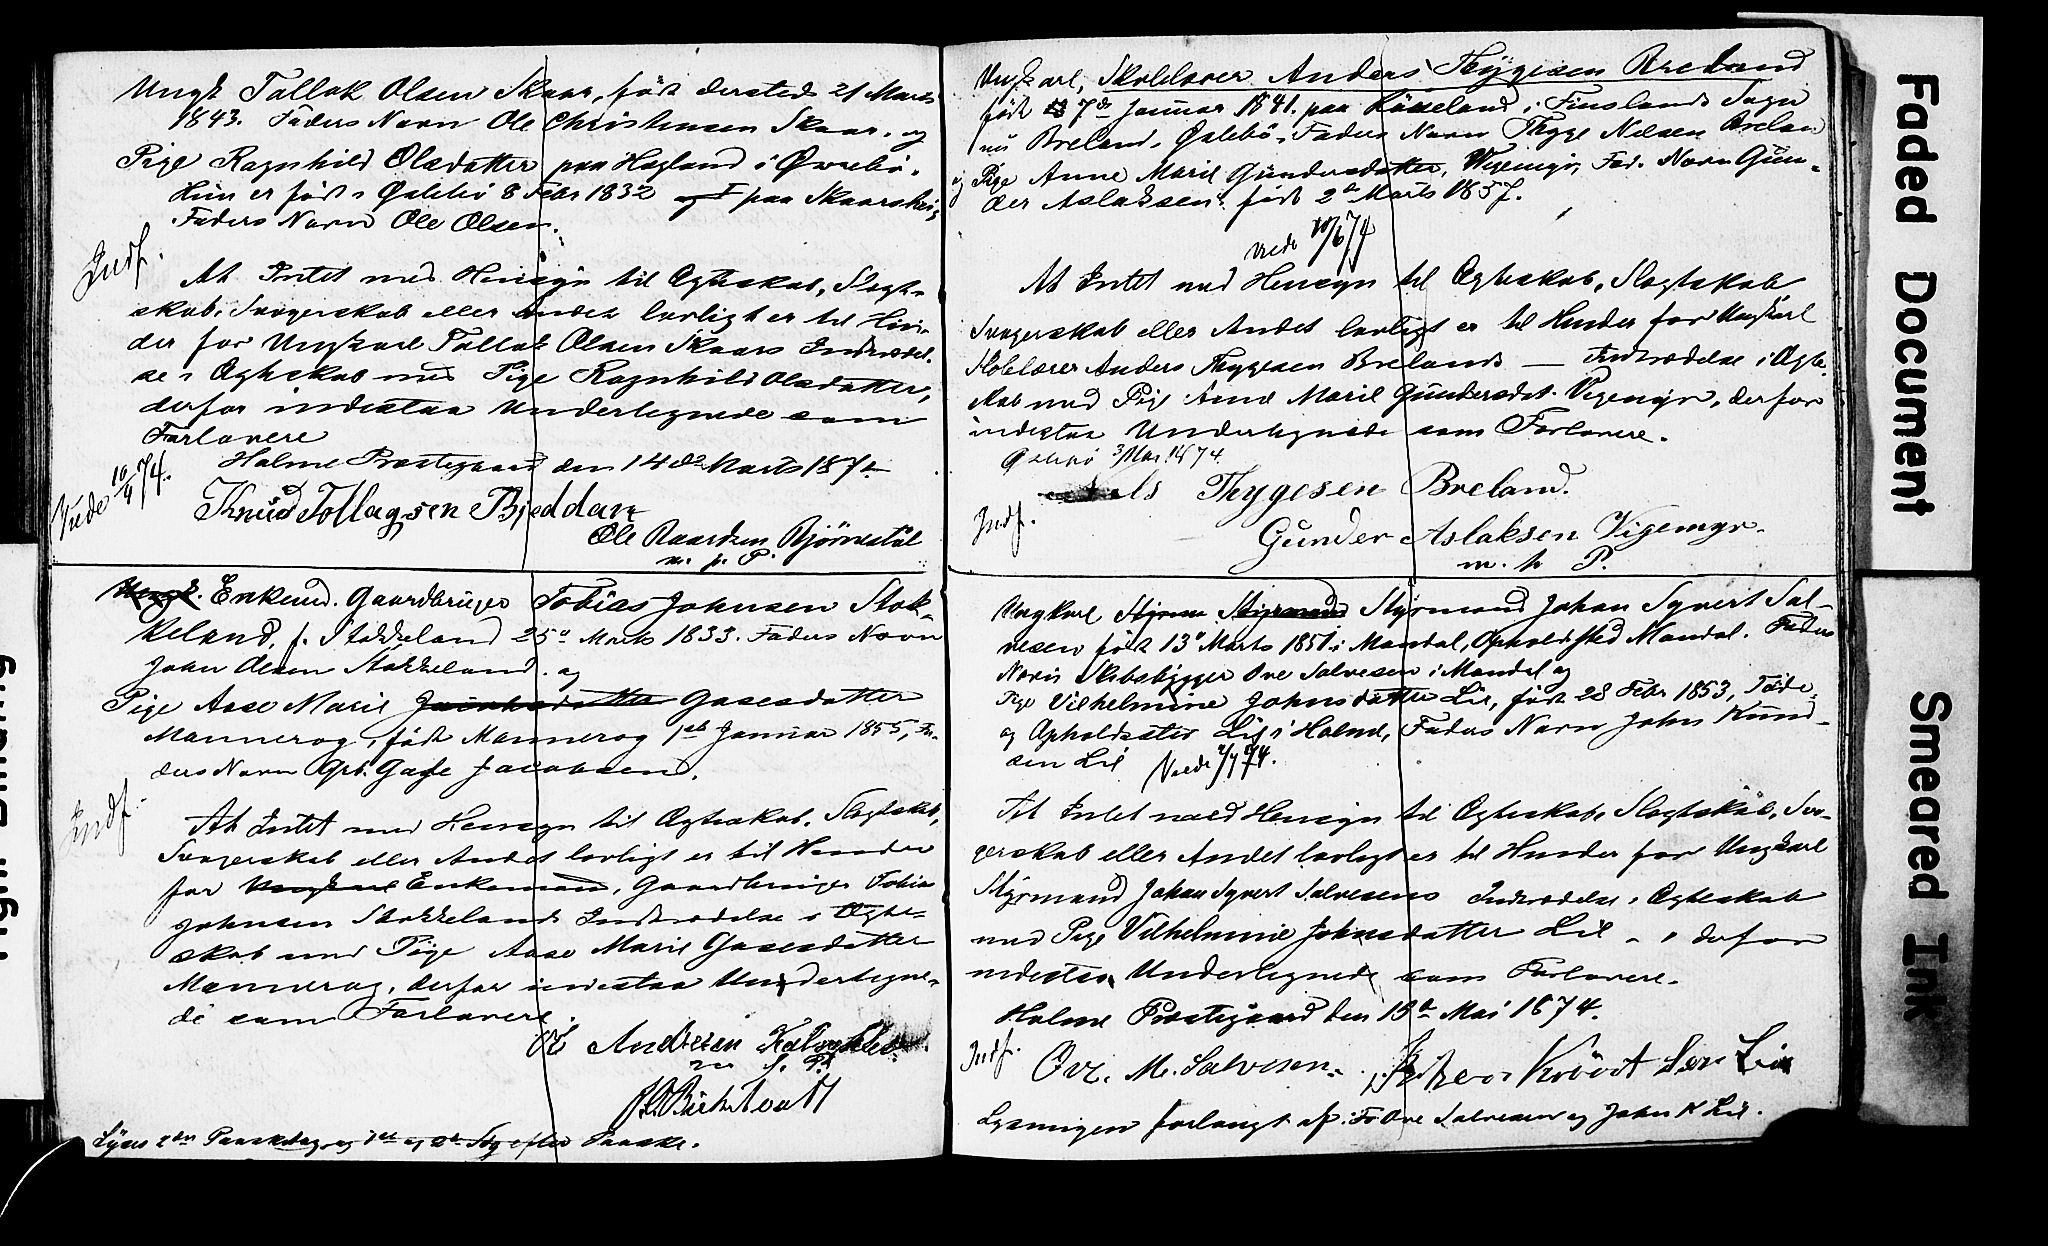 Ungk Tallak Olsen Skaar, født dersteds 21 Marts
1843. Faders Navn Ole Christensen Skaar. og
Pige Ragnhild Olsdatter paa Hægland i Øvrebø.
Hun er født i Øslebø 8 Febr 1832 paa
Faders Navn Ole Olsen.
Indf.
At Intet med Hensyn til Ægteskab, Slægt-
skab, Svogerskab eller Andet lovligt er til Hin-
der for Ungkarl Tallak Olsen Skaars Indtrædel-
se i Ægteskab med Pige Ragnhild Olsdatter,
derfor indestaa Undertegnede som
Forlovere
Holme Præstegaard den 14de Marts 1874
Viede 10/4 74.
Knud Tollagsen
Ole Raardsen Bjørnestøl
m. p. P.
Ungk. Enkemd. Gaardbruger Tobias Johnsen Stok-
keland, f. Stokkeland 25de Marts 1833. Faders Navn
John Olsen Stokkeland. og
Pige Aase Marie Jacobsdatter Gasesdatter
Mannerog, født Mannerog 1ste Januar 1855, Fa-
ders Navn Gbr. Gase Jacobsen.
Indf.
At Intet med Hensyn til Ægteskab, Slægtskab,
Svogerskab eller Andet lovligt er til Hinder
for Ungkarl Enkemand, Gaardbruger Tobias
Johnsen Stokkelands Indtrædelse i Ægte-
skab med Pige Aase Marie Gasesdatter
Mannerog, derfor indestaa Undertegne-
de som Forlovere.
Andresen
Lyses 2den Paaskedag og 1ste og 2den Søg efter Paaske.
Ungkarl, Skolelærer Anders Thygesen Breland
født 7de Januar 1841. paa i Finslands Sogn
nu Breland, Øslebø, Faders Navn Thygge Nilsen Breland
og Pige Anne Marie Gundersdatter, Vigemyr, Fad. Navn Gun-
der Aslaksen. født 2de Marts 1857.
viede 10/6 74
At Intet med Hensyn til Ægteskab, Slægtskab
Svogerskab eller Andet lovligt er til Hinder for Ungkarl
Skolelærer Anders Thygesen Brelands — Indtrædelse i Ægte-
skab med Pige Anne Marie Gundersdat. Vigemyr, derfor
indestaa Undertegnede som Forlovere.
Øslebø 3/Mai 1874
Thygesen Breland.
Indf.
Gunder Aslaksen Vigemyr.
m. p. P.
Ungkarl Styrmand Styrmand Johan Syvert Sal-
vesen født 13de Marts 1851 i Mandal, Opholdssted Mandal. Faders
Navn Skibsbygger Ove Salvesen i Mandal og
Pige Vilhelmine Johnsdatter Lie, født 28 Febr 1853, Føde-
og Opholdssted Lie i Holme, Faders Navn John Knud-
sen Lie Viede 2/7 74.
At Intet med Hensyn til Ægteskab, Slægtskab, Svo-
gerskab eller Andet lovligt er til Hinder for Ungkarl
Styrmand Johan Syvert Salvesens Indtrædelse i Ægteskab
med Pige Vilhelmine Johnsdatter Lie - , derfor
indestaa Undertegnede som Forlovere.
Holme Præstegaard den 13de Mai 1874.
Indf.
Ove. M. Salvesen.
Lysningen forlangt af: Ove Salvesen og John K Lie.
Faded Document
Smeared Ink